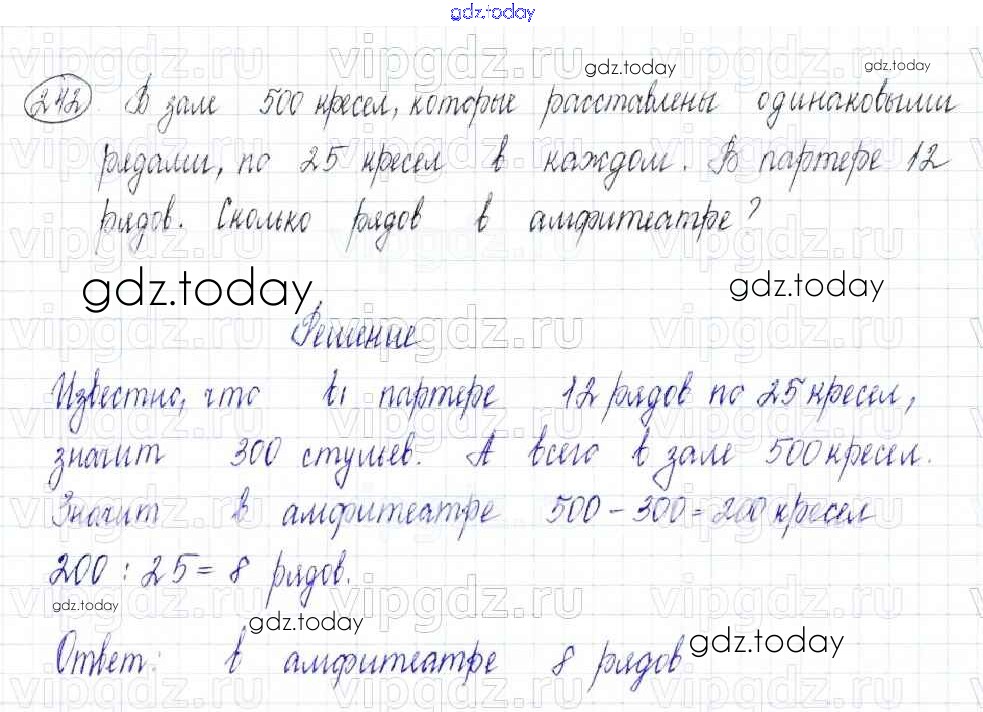 gdz.today
gdz.today gdz.today
242. В зале 500 кресел, которые расставлены одинаковыми
рядами, по 25 кресел в каждом. В партере 12
рядов. Сколько рядов в амфитеатре?
gdz.today gdz.today
Решение
Известно, что в партере 12 рядов по 25 кресел,
значит 300 стульев. А всего в зале 500 кресел.
Значит в амфитеатре 500 - 300 = 200 кресел
200 : 25 = 8 рядов.
gdz.today
gdz.today gdz.today
Ответ: в амфитеатре 8 рядов
vipgdz.ru vipgdz.ru vipgdz.ru